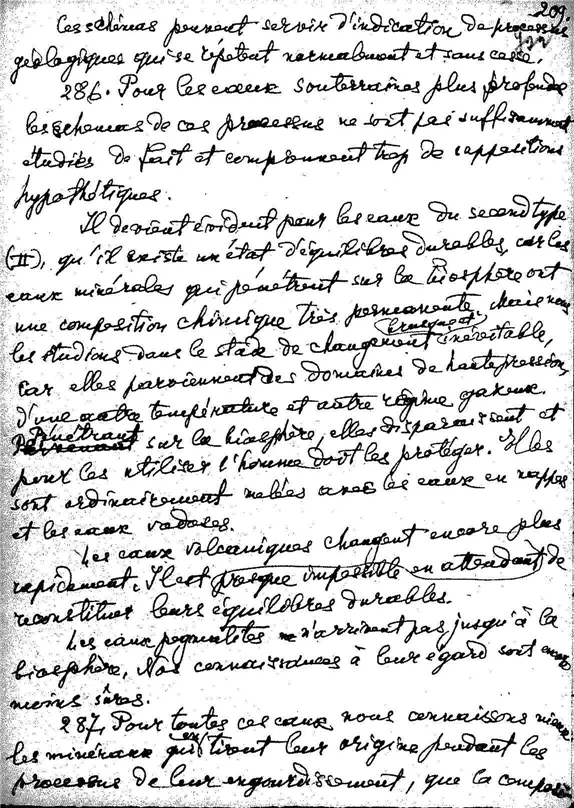 209.
Ces schémas peuvent servir d'indication de processus
géologiques qui se répètent normalement et sans cesse.
286. Pour les eaux souterraines plus profondes
les schémas de ces processus ne sont pas suffisamment
étudiés de fait et comprennent trop de suppositions
hypothétiques.
Il devient évident pour les eaux du second type
(II), qu'il existe un état d'équilibres durables, car les
eaux minérales qui pénètrent sur la biosphère ont
une composition chimique très permanente, mais nous
les étudions dans le stade de changement brusque et inévitable,
car elles parviennent des domaines de haute pression,
d'une autre température et autre régime gazeux.
Pénétrant sur la biosphère, elles disparaissent et
pour les utiliser l'homme doit les protéger. Elles
sont ordinairement mêlées avec les eaux en nappes
et les eaux vadoses.
Les eaux volcaniques changent encore plus
rapidement. Il est presque impossible en attendant de
reconstituer leurs équilibres durables.
Les eaux pegmatites n'arrivent pas jusqu'à la
biosphère. Nos connaissances à leur égard sont encore
moins sûres.
287. Pour toutes ces eaux nous connaissons mieux
les minéraux qui en tirent leur origine pendant les
processus de leur engourdissement, que la composi